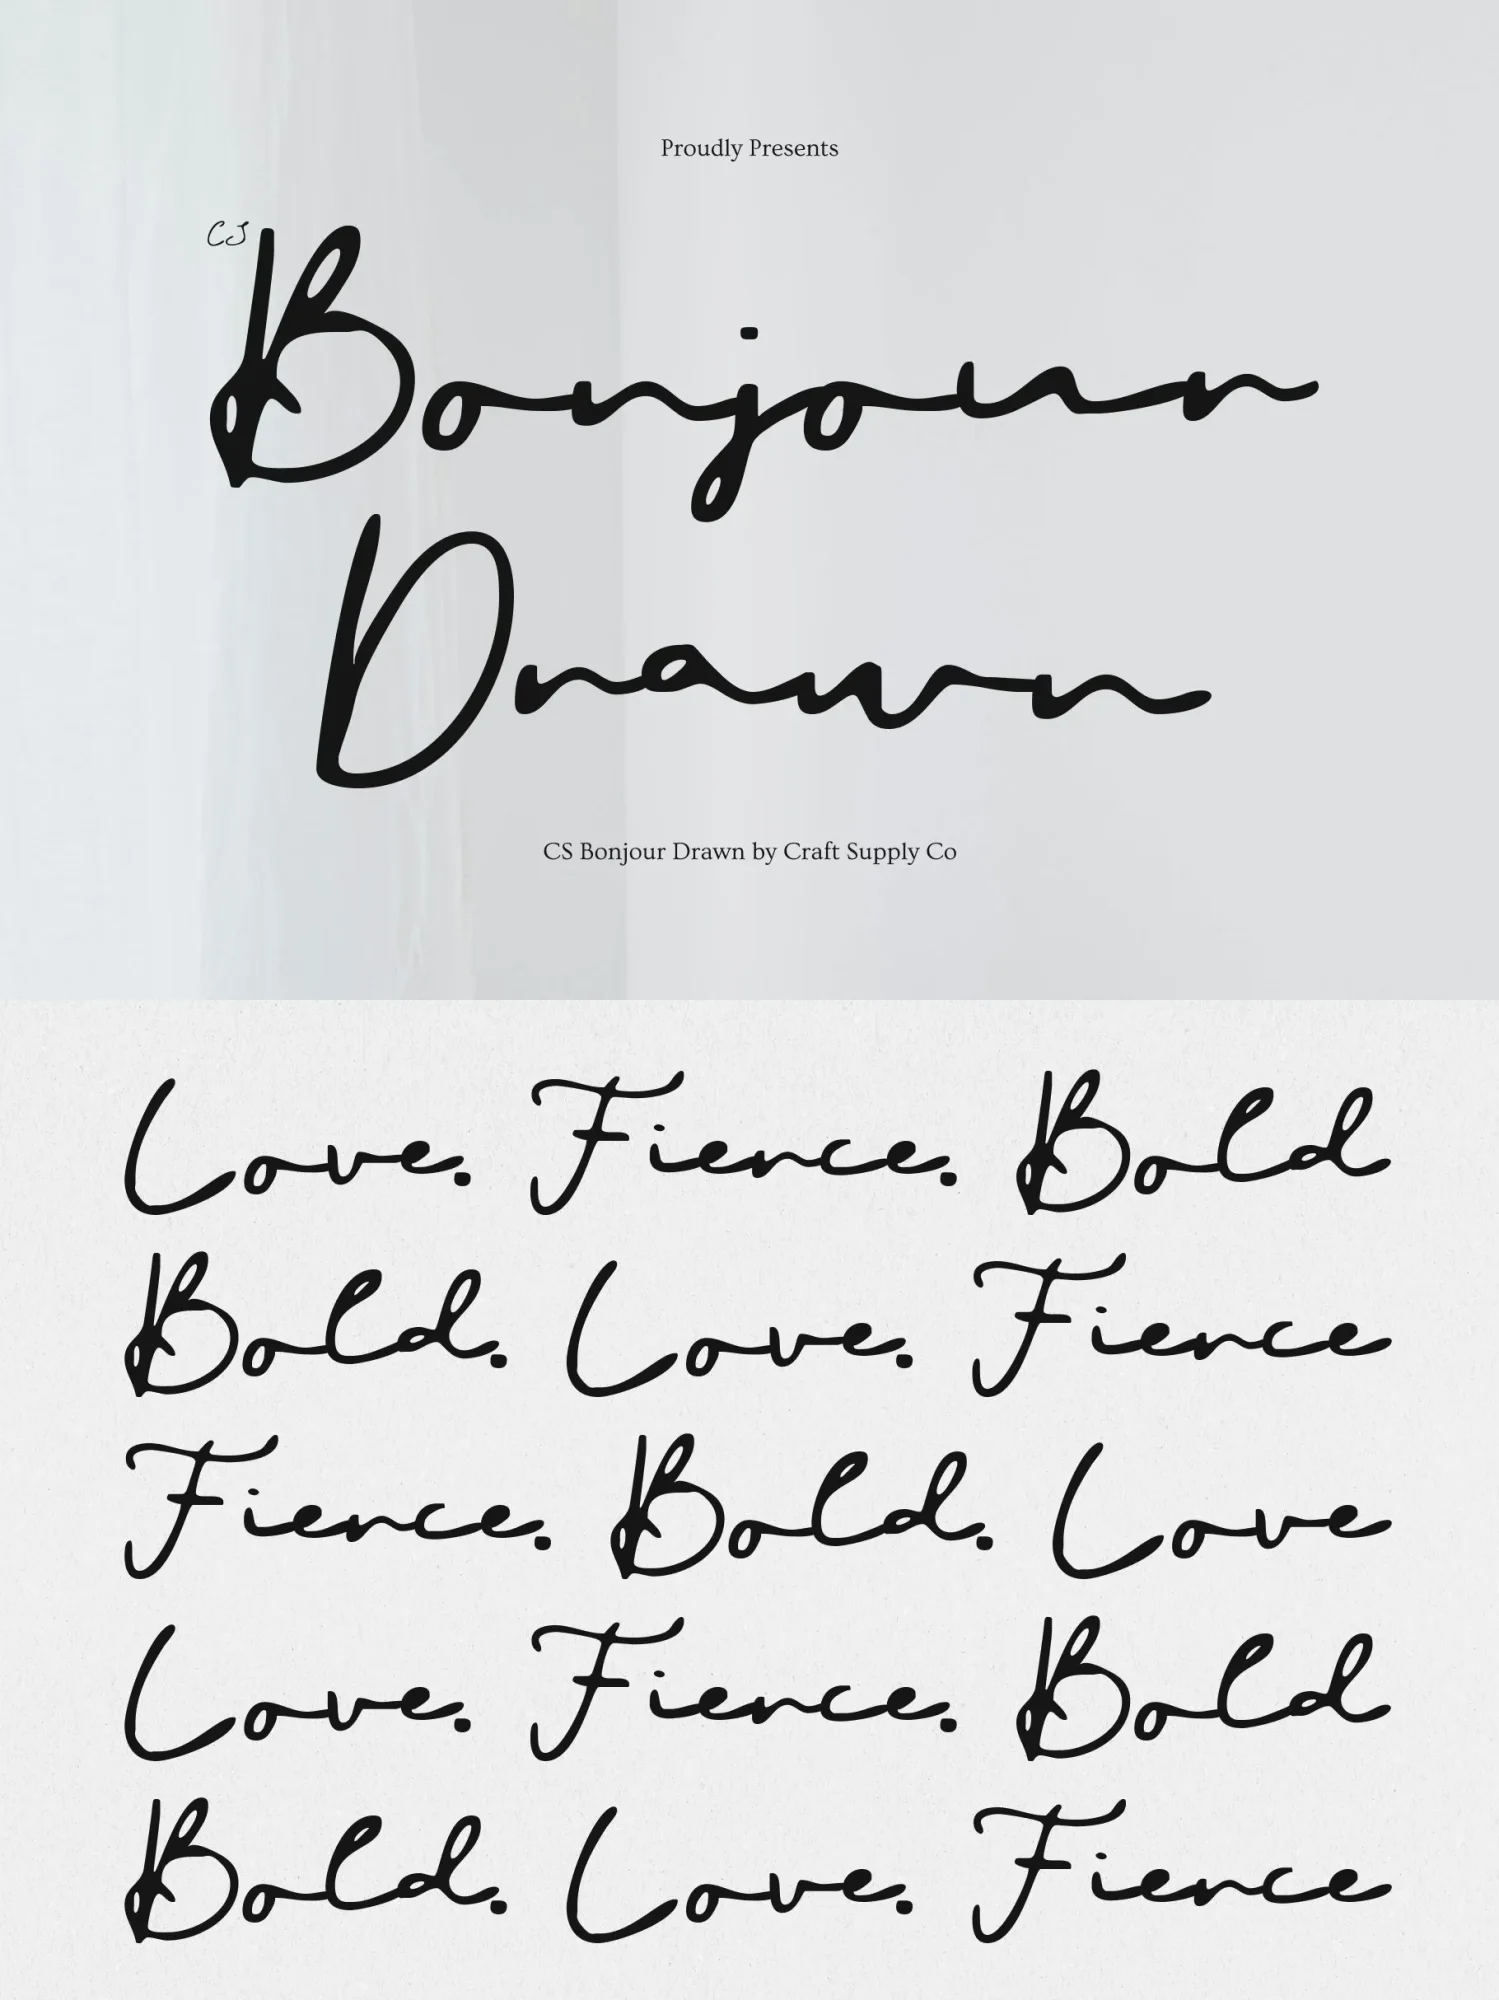 Proudly Presents
CS
Bonjour
Drawn
CS Bonjour Drawn by Craft Supply Co
Love. Fierce. Bold
Bold. Love. Fierce
Fierce. Bold. Love
Love. Fierce. Bold
Bold. Love. Fierce